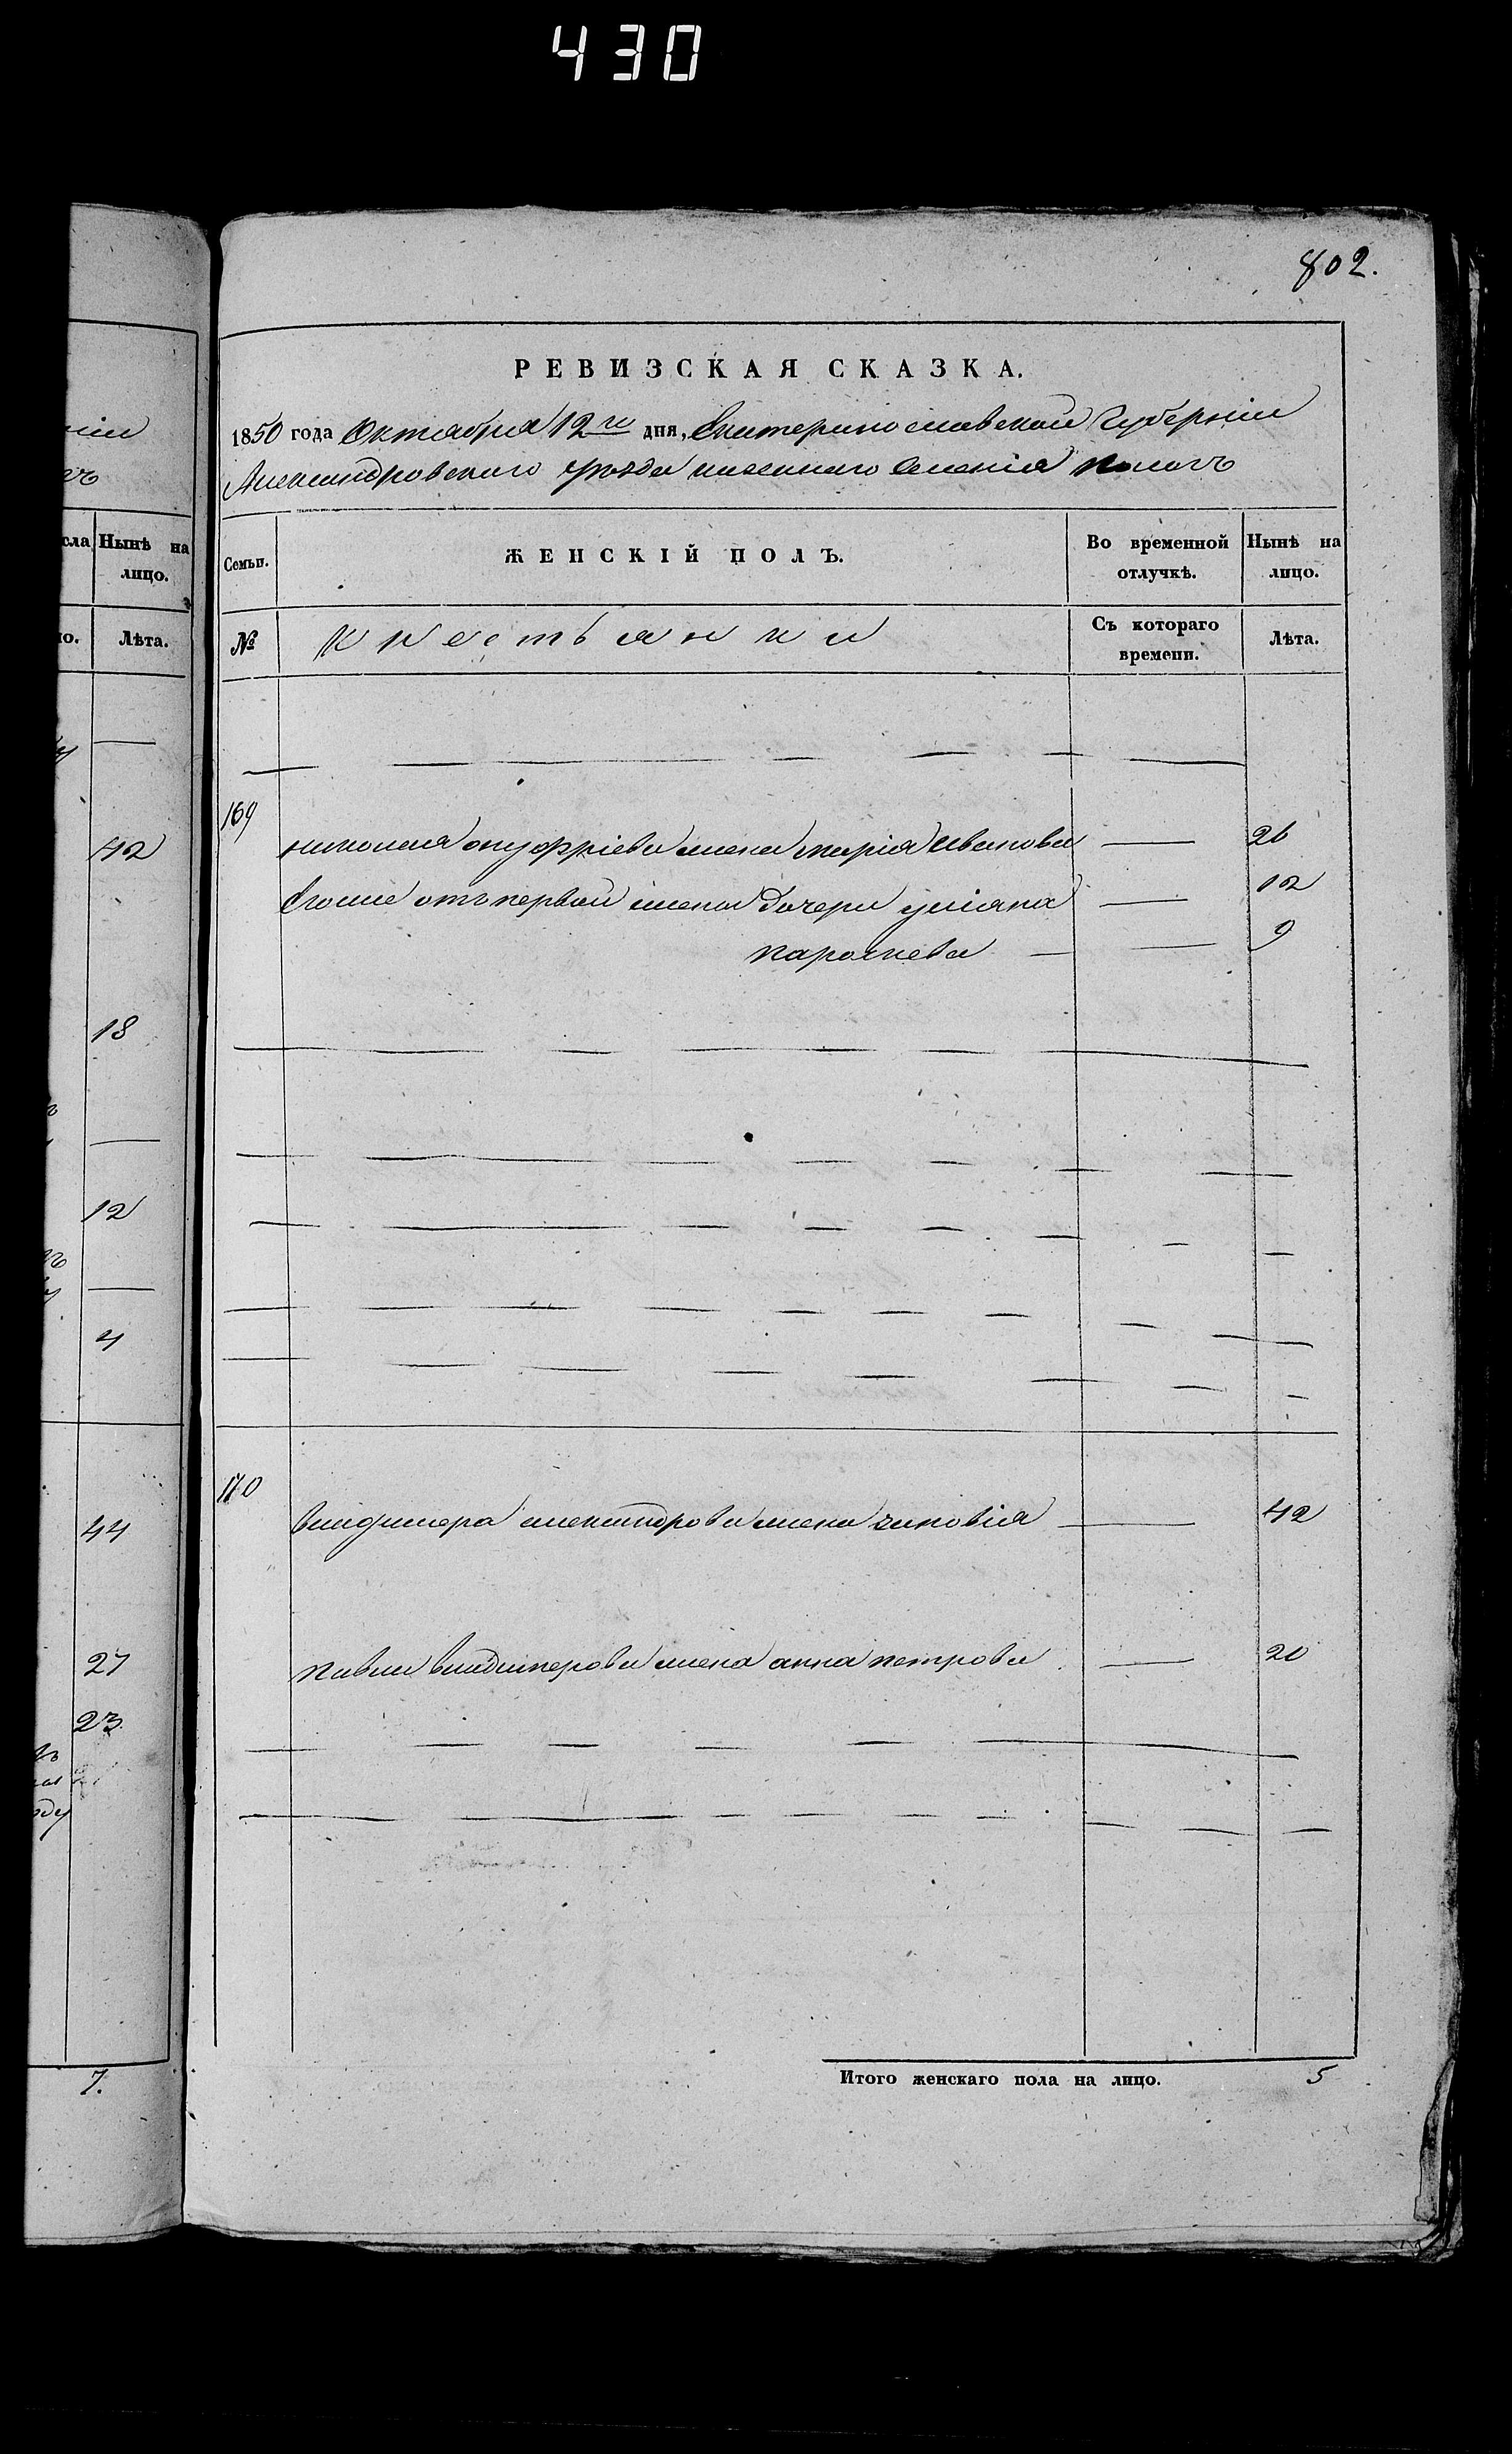 430
802.
РЕВИЗСКАЯ СКАЗКА.
1850 года Октября 12го дня, Екатеринославской Губерніи
Александровского уѣзда казенного селенія Пологъ
Семьи. ЖЕНСКІЙ ПОЛЪ. Во временной отлучкѣ. Нынѣ на лицо.
№ Крестьянки Съ котораго времени. Лѣта.
169
николая онуфріева жена марія Иванова 26
Егоже отъ первой жены дочери уліяна 12
параскева 9
170
владимера александрова жена зиновія 42
павла владимерова жена анна петрова 20
Итого женскаго пола на лицо. 5
сла Нынѣ на лицо.
но. Лѣта.
42
18
12
4
44
27
23
7.